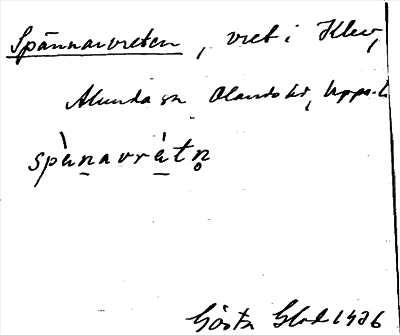 Spännarvreten, vret i Klev,
Alunda sn Olands hd, Upps. l.
spànavrètn̥
Gösta Blod 1936